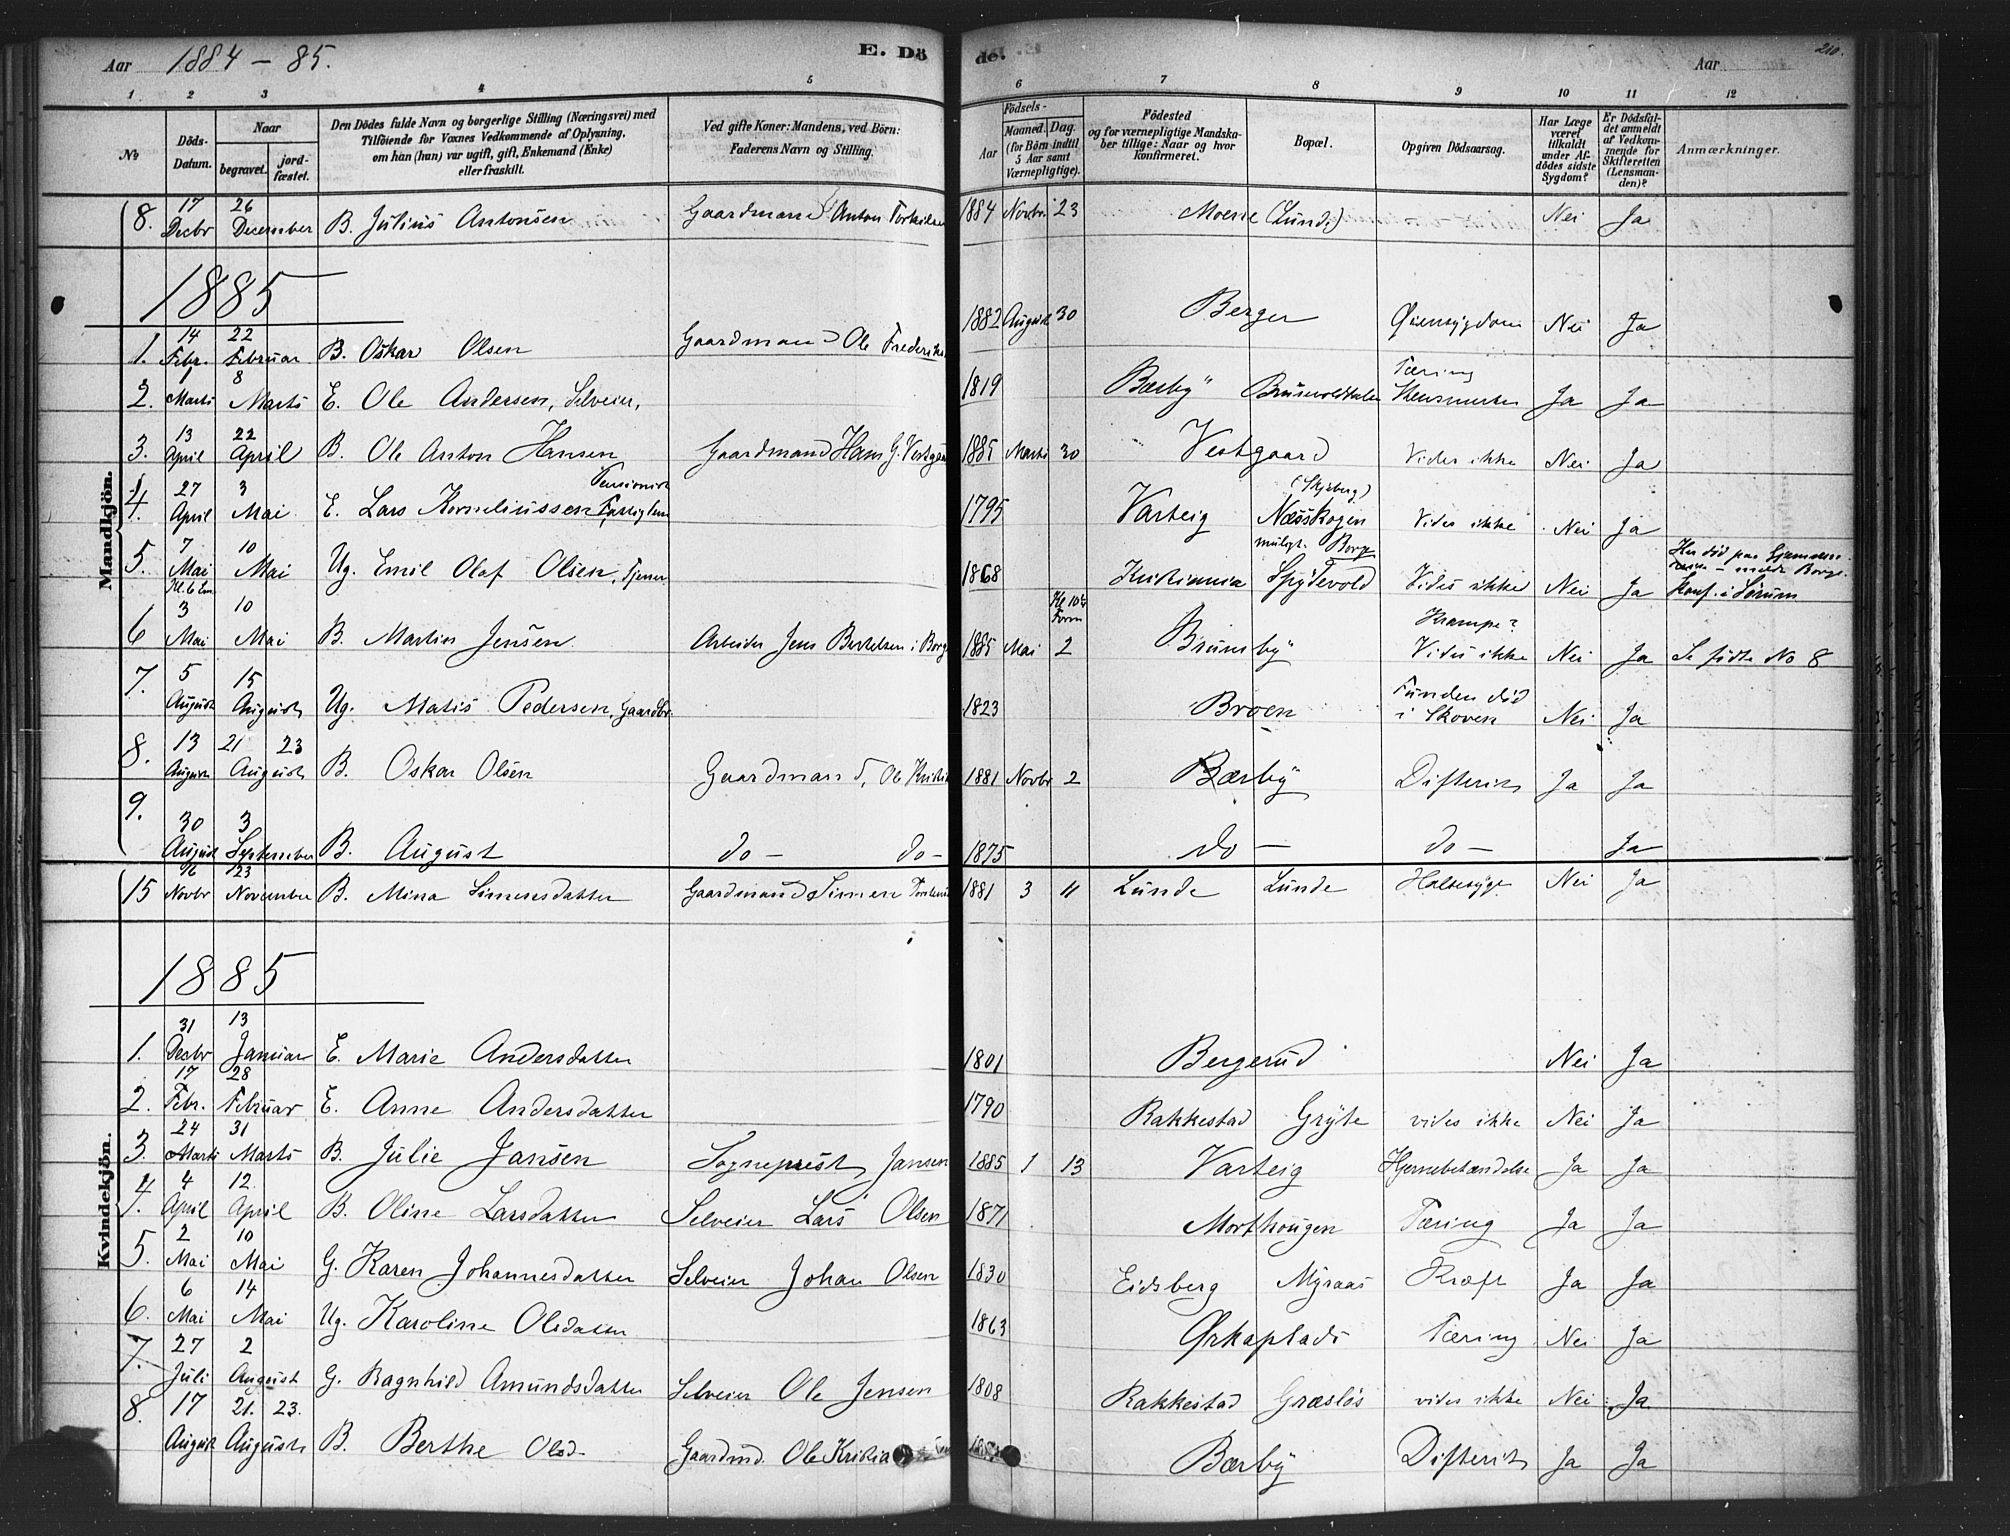 Aar 1884 - 85.
E. Dö
de.
Aar
210.
1 2 3 4 5 6 7 8 9 10 11 12
No
Döds-
Datum.
Naar
begravet.
jord-
fæstet.
Den Dödes fulde Navn og borgerlige Stilling (Næringsvei) med
Tilföiende for Voxnes Vedkommende af Oplysning,
om han (hun) var ugift, gift, Enkemand (Enke)
eller fraskilt.
Ved gifte Koner: Mandens, ved Börn:
Faderens Navn og Stilling.
Födsels-
Aar
Maaned. Dag.
(for Börn indtil
5 Aar samt
Værnepligtige).
Födested
og for værnepligtige Mandska-
ber tillige: Naar og hvor
konfirmeret.
Bopæl.
Opgiven Dödsaarsag.
Har Læge
været
tilkaldt
under Af-
dödes sidste
Sygdom?
Er Dödsfal-
det anmeldt
af Vedkom-
mende for
Skifteretten
(Lensman-
den)?
Anmærkninger.
Mandkjön.
8. 17 Decbr 26 December B. Julius Antonsen Gaardmand Anton Torkilsen 1884 Novbr 23 Moene (Lunde) Nei Ja
1885
1. 14 Febr. 22 Februar B. Oskar Olsen Gaardmand Ole Frederiks 1882 August 30 Berger Øiensygdom Nei Ja
2. 1 Marts 8 Marts E. Ole Andersen, Selveier, 1819 Bærby Tæring Ja Ja
3. 13 April 22 April B. Ole Anton Hansen Gaardmand Hans G. Vestgaard 1885 Marts 30 Vestgaard Vides ikke Nei Ja
4. 27 April 3 Mai E. Lars Korneliussen Pensionist 1795 Varteig (Skjeberg) Næsskogen Vides ikke Nei Ja
5. 7 Mai 10 Mai Ug. Emil Olaf Olsen, Tjener 1868 Kristiania muligt. Borge Spydevold Vides ikke Nei Ja Konf. i Sørum
6 Kl. 6 Em. 3 Mai 10 Mai B. Martin Jensen Arbeider Jens Bertelsen i Borge 1885 Mai Kl 10½ Form 2 Brunsby Krampe? Vides ikke Nei Ja Se fødte No 8
7. 5 August 15 August Ug. Matis Pedersen, Gaardbr. 1823 Broen Funden død i Skoven Nei Ja
8. 13 August 21 23 August B. Oskar Olsen Gaardmand, Ole Kristia 1881 Novbr 2 Bærby Difterit Ja Ja
9. 30 August 3 September B. August do - do - 1875 do - do - Ja
Kvindekjön.
15 16 Novbr 23 November B. Mina Simensdatter Gaardmand Simen 1881 3 11 Lunde Lunde Halssyge Nei Ja
1885
1. 31 Decbr 13 Januar E. Marie Andersdatter 1801 Bergerud Nei Ja
2. 17 Febr. 28 Februar E. Anne Andersdatter 1790 Rakkestad Gryte vides ikke Nei Ja
3. 24 Marts 31 Marts B. Julie Jansen Sogneprest Jansen 1885 1 13 Varteig Hjernebetændelse Ja Ja
4. 4 April 12 April B. Oline Larsdatter Selveier Lars Olsen 1871 Morthougen Tæring Ja Ja
5. 2 Mai 10 Mai G. Karen Johannesdatter Selveier Johan Olsen 1830 Eidsberg Myraas Kræft Ja Ja
6. 6 Mai 14 Mai Ug. Karoline Olsdatter 1863 Ørkaplads Tæring Nei Ja
7. 27 Juli 2 August G. Ragnhild Amundsdatter Selveier Ole Jensen 1808 Rakkestad Græsløs vides ikke Nei Ja
8. 17 August 21. 23. August B. Berthe Olsd- Gaardmd. Ole Kristia Bærby Difterit Ja Ja